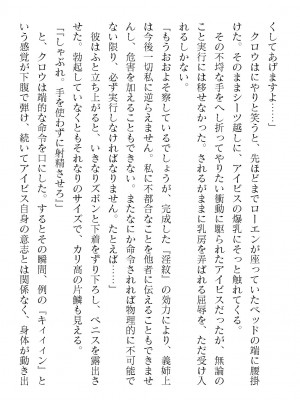 くしてあげますよ……」
　クロウはにやりと笑うと、先ほどまでローエンが座っていたベッドの端に腰掛
け、そのままシーツ越しに、アイビスの爆乳にそっと触れてくる。
　その不埒な手をへし折ってやりたい衝動に駆られたアイビスだったが、無論の
こと実行には移せなかった。されるがままに乳房を弄ばれる屈辱を、ただ受け入
れるしかない。
「もうおおよそ察しているでしょうが、完成した『淫紋』の効力により、義姉上
は今後一切私に逆らえません。私に不都合なことを他者に伝えることもできませ
んし、危害を加えることもできない。またなにか命令されれば物理的に不可能で
ない限り、必ず実行しなければなりません。たとえば……」
　彼はふと立ち上がると、いきなりズボンと下着をずり下ろし、ペニスを露出さ
せた。勃起していなくともそれなりのサイズで、カリ高の片鱗も見える。
「『しゃぶれ。手を使わずに射精させろ』」
　と、クロウは端的な命令を口にした。するとその瞬間、例の『キィィイン』と
いう感覚が下腹で弾け、続いてアイビス自身の意志とは関係なく、身体が動き出